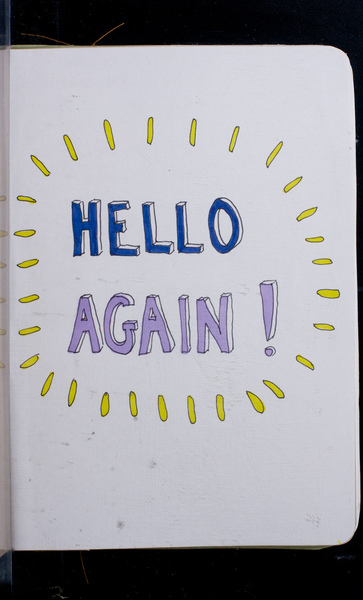 HELLO
AGAIN!